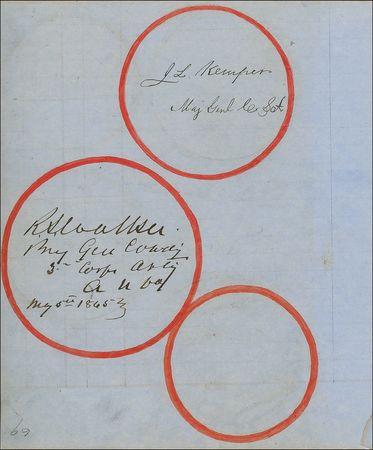 J L Kemper
Maj Genl C. S. A.
R L Walker.
Brig Gen Comdg
3rd Corps Arty
A n va
May 5th 1865
69